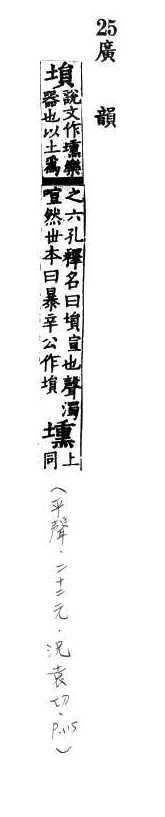 25廣韻
塤說文作壎樂
器也以土爲
之六孔釋名曰塤宣也聲濁
喧然世本曰暴辛公作塤
壎上
同
(平聲.二十二元.況袁切.P.115)